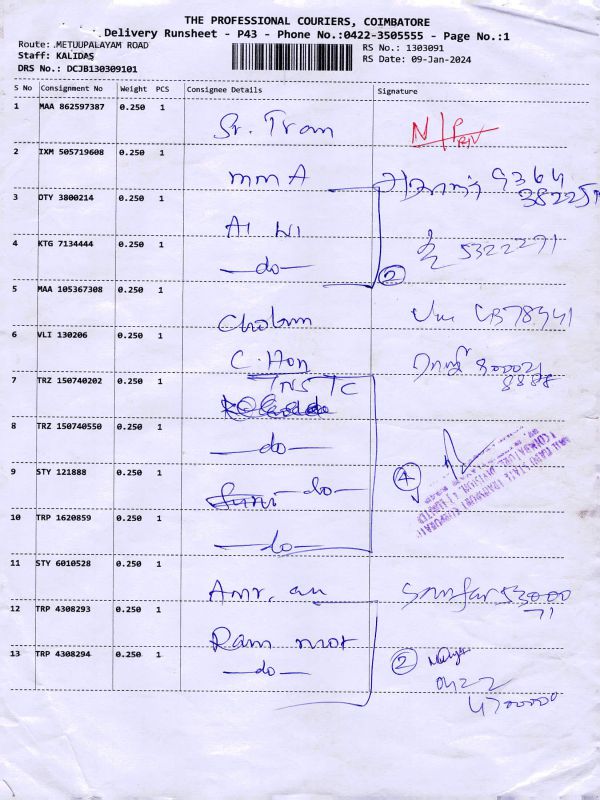 THE PROFESSIONAL COURIERS, COIMBATORE
Delivery Runsheet - P43 - Phone No.:0422-3505555 - Page No.:1
Route: METUUPALAYAM ROAD
RS No.: 1303091
Staff: KALIDAS
RS Date: 09-Jan-2024
DRS No.: DCJB130309101
S No Consignment No Weight PCS Consignee Details Signature
1 MAA 862597387 0.250 1 Sr. Tram N/P
2 IXM 505719608 0.250 1 mm A 9364
38225
3 OTY 3800214 0.250 1 AI
4 KTG 7134444 0.250 1 -do- 2 5322271
5 MAA 105367308 0.250 1
6 VLI 130206 0.250 1 C. Hon 80002
8888
7 TRZ 150740202 0.250 1 TNSTC
8 TRZ 150740550 0.250 1 -do-
9 STY 121888 0.250 1 -do- 4
10 TRP 1620859 0.250 1 -do-
11 STY 6010528 0.250 1 53000
71
12 TRP 4308293 0.250 1 Ram
13 TRP 4308294 0.250 1 -do- 2
0422
4700000